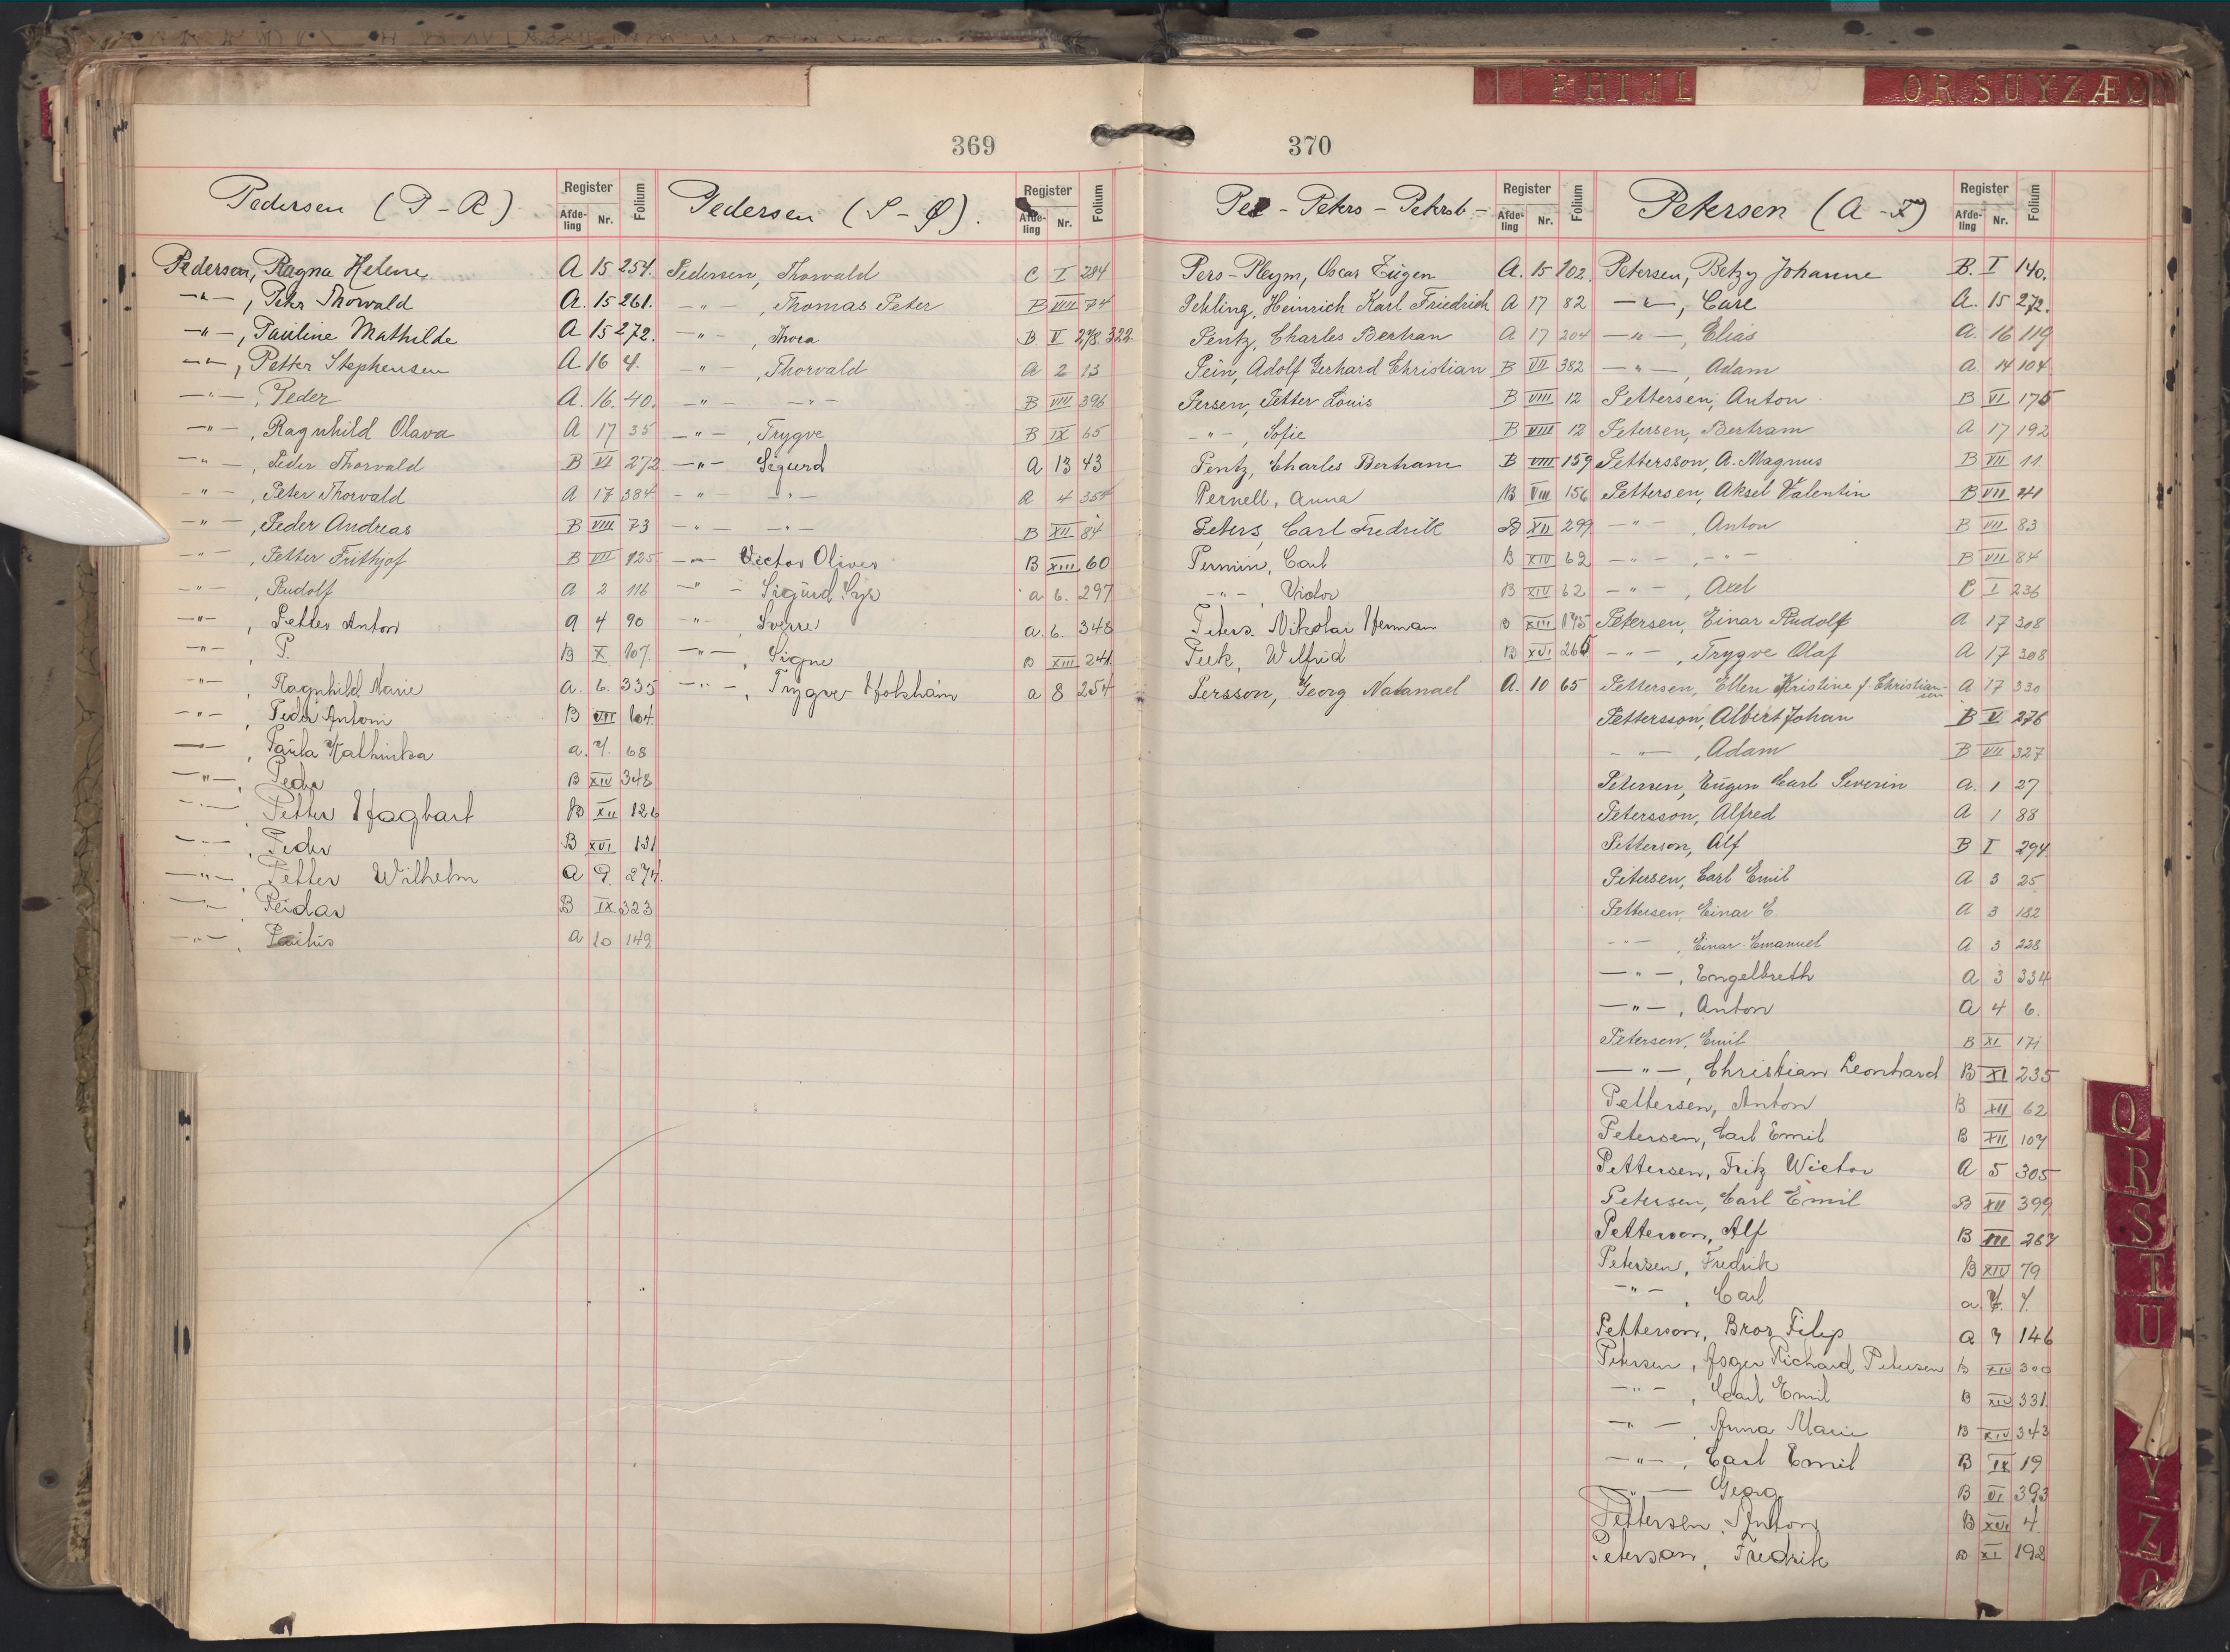 F H I J L
O R S U Y Z Æ Ø
369
Pedersen (P - R)
Register
Afde-
ling
Nr.
Folium
Pedersen, Ragna Helene A 15 254.
—"—, Peter Thorvald A. 15 261.
—"—, Pauline Mathilde A 15 272.
—"—, Petter Stephensen A 16 4.
—"—, Peder A. 16. 40.
—"—, Ragnhild Olava A 17 35
—"—, Peder Thorvald B VI 272
—"—, Peter Thorvald A 17 384
—"—, Peder Andreas B VIII 73
—"—, Petter Frithjof B VIII 125
—"—, Rudolf A 2 116
—"—, Petter Anton A 4 90
—"—, P. B X 107.
—"—, Ragnhild Marie A. 6. 335
—"—, Peder Antoni B VII 104
—"—, Paula Kathinka a. 7. 68
—"—, Peder B XIV 348
—"—, Petter Hagbart B XII 126
—"—, Peder B XVI 131
—"—, Petter Wilhelm A 9. 274.
—"—, Reidar B IX 323
—"—, A 10 149
Pedersen (S - Ø).
Register
Afde-
ling
Nr.
Folium
Pedersen, Thorvald C I 284
—"—, Thomas Peter B VIII 74
—"—, Thora B V 278. 322.
—"—, Thorvald A 2 13
—"— —"— B VIII 396
—"—, Trygve B IX 65
—"— Sigurd A 13 43
—"— —"— A 4 354
—"— —"— B XII 84
—"— Victor Oliver B XIII 60
—"— Sigurd a 6. 297
—"—, Sverre a. 6. 348
—"—, Signe B XIII 241
—"—, Trygve a 8 254
370
Per - Peters - Petersb -
Register
Afde-
ling
Nr.
Folium
Pers-Pleym, Oscar Eugen A. 15 102.
Pehling, Heinrich Karl Friedrich A 17 82
Pentz, Charles Bertran A 17 204
Pein, Adolf Gerhard Christian B VII 382
Persen, Petter Louis B VIII 12
—"—, Sofie B VIII 12
Pentz, Charles Bertram B VIII 159
Pernell, Anna B VIII 156
Peters, Carl Fredrik B XII 299
Permin, Carl B XIV 62
—"—, Victor B XIV 62
Peters. Nikolai Herman B XIII 195
Peek, Wilfrid B XVI 266
Persson, Georg Natanael A. 10 65
Petersen (A - F)
Register
Afde-
ling
Nr.
Folium
Petersen, Betzy Johanne B. I 140.
—"—, Carl A. 15 272.
—"—, Elias A. 16 119
—"—, Adam A. 14 104
Pettersen, Anton B VI 175
Petersen, Bertram A 17 192
Pettersson, A. Magnus B VII 11.
Pettersen, Aksel Valentin B VII 41
—"—, Anton B VII 83
—"—, —"— B VII 84
—"—, Axel C I 236
Petersen, Einar Rudolf A 17 308
—"—, Trygve Olaf A 17 308
Pettersen, Ellen Kristine f. Christian-
sen A 17 330
Pettersson, Albert Johan B V 276
—"—, Adam B VII 327
Petersen, Eugen Carl Severin A. 1 27
Petersson, Alfred A 1 88
Petterson, Alf B I 294
Petersen, Carl Emil A 3 25
Pettersen, Einar E. A 3 182
—"—, Einar Emanuel A 3 228
—"—, Engelbreth A 3 334
—"—, Anton A 4 6.
Petersen, Emil B XI 171
—"—, Christian Leonhard B XI 235
Pettersen, Anton B XII 62
Petersen, Carl Emil B XII 107
Pettersen, Fritz Victor A 5 305
Petersen, Carl Emil B XII 399
Petterson, Alf B III 267
Petersen, Fredrik B XIV 79
—"—, Carl a 7. 7.
Petterson, Bror Filip A 7 146
Petersen, Asger Richard Petersen B XIV 300
—"—, Carl Emil B XIV 331.
—"—, Anna Marie B XIV 343
—"—, Carl Emil B IX 19
—"— Georg B VI 393
Pettersen, Anton B XVI 4
Peterson, Fredrik B XI 192
Q
R
S
T
U
Y
Z